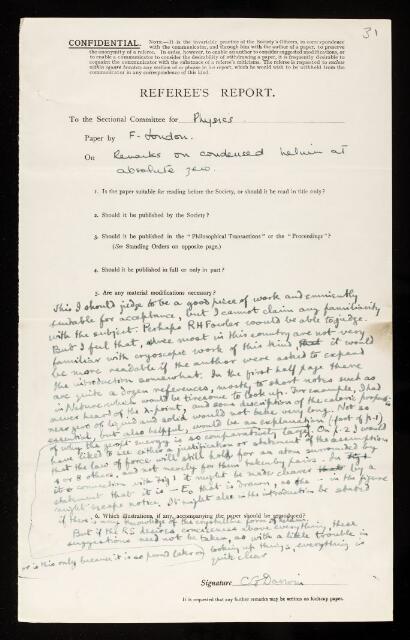 31
CONFIDENTIAL. NOTE.—It is the invariable practice of the Society's Officers, in correspondence
with the communicator, and through him with the author of a paper, to preserve
the anonymity of a referee. In order, however, to enable an author to consider suggested modifications, or
to enable a communicator to consider the desirability of withdrawing a paper, it is frequently desirable to
acquaint the communicator with the substance of a referee's criticisms. The referee is requested to enclose
within square brackets any section or phrase in his report, which he would wish to be withheld from the
communicator in any correspondence of this kind.
REFEREE'S REPORT.
To the Sectional Committee for Physics
Paper by F. London.
On Remarks on condensed helium at
absolute zero.
1. Is the paper suitable for reading before the Society, or should it be read in title only?
2. Should it be published by the Society?
3. Should it be published in the "Philosophical Transactions" or the "Proceedings"?
(See Standing Orders on opposite page.)
4. Should it be published in full or only in part?
5. Are any material modifications necessary?
This I should judge to be a good piece of work and eminently
suitable for acceptance, but I cannot claim any familiarity
with the subject. Perhaps R H Fowler would be able to judge.
But I feel that, since most in this country are not very
familiar with cryoscopic work of this kind, it would
be more readable if the author were asked to expand
the introduction somewhat. In the first half page there
are quite a dozen references, mostly to short notes such as
in Nature which would be tiresome to look up. For example, I had
never heard of the λ-point, and some description of the caloric properties
near zero of liquid and solid would not be very long. Not so
essential, but also helpful, would be an explanation (foot of p.1)
of why the zero point energy is so comparatively large. On p.2 I would
have liked to see either a justification or statement of the assumptions
that the law of force will still hold for an atom surrounded by
4 or 8 others, and not merely for them taken by pairs. In
connection with fig 1 it might be made clearer by a
statement that it is − E₀ that is drawn, as the − in the figure
might escape notice. It might also in the introduction be stated
if there is any knowledge of the crystalline form of helium.
6. Which illustrations, if any, accompanying the paper should be reproduced?
But if the RS desires conciseness above everything, these
suggestions need not be taken, as with a little trouble in
looking up things, everything is
quite clear
or is this only because it is so
Signature C G Darwin
It is requested that any further remarks may be written on foolscap paper.